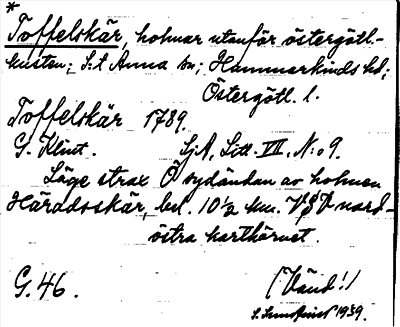 *
Toffelskär, holmar utanför östergötl.-
kusten; S:t Anna sn; Hammarkinds hd;
Östergötl. l.
Toffelskär 1789.
G. Klint. Sj.A. Litt. VII. N:o 9.
Läge strax Ö sydändan av holmen
Häradsskär, bel. 10½ km. VSV nord-
östra karthörnet.
G. 46. (Vänd!)
1939.